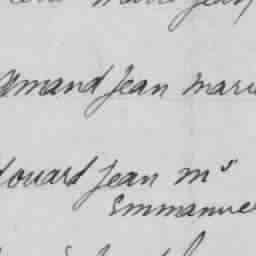 Marie Jean
Amand Jean Marie
douard Jean Ms
Emmanuel